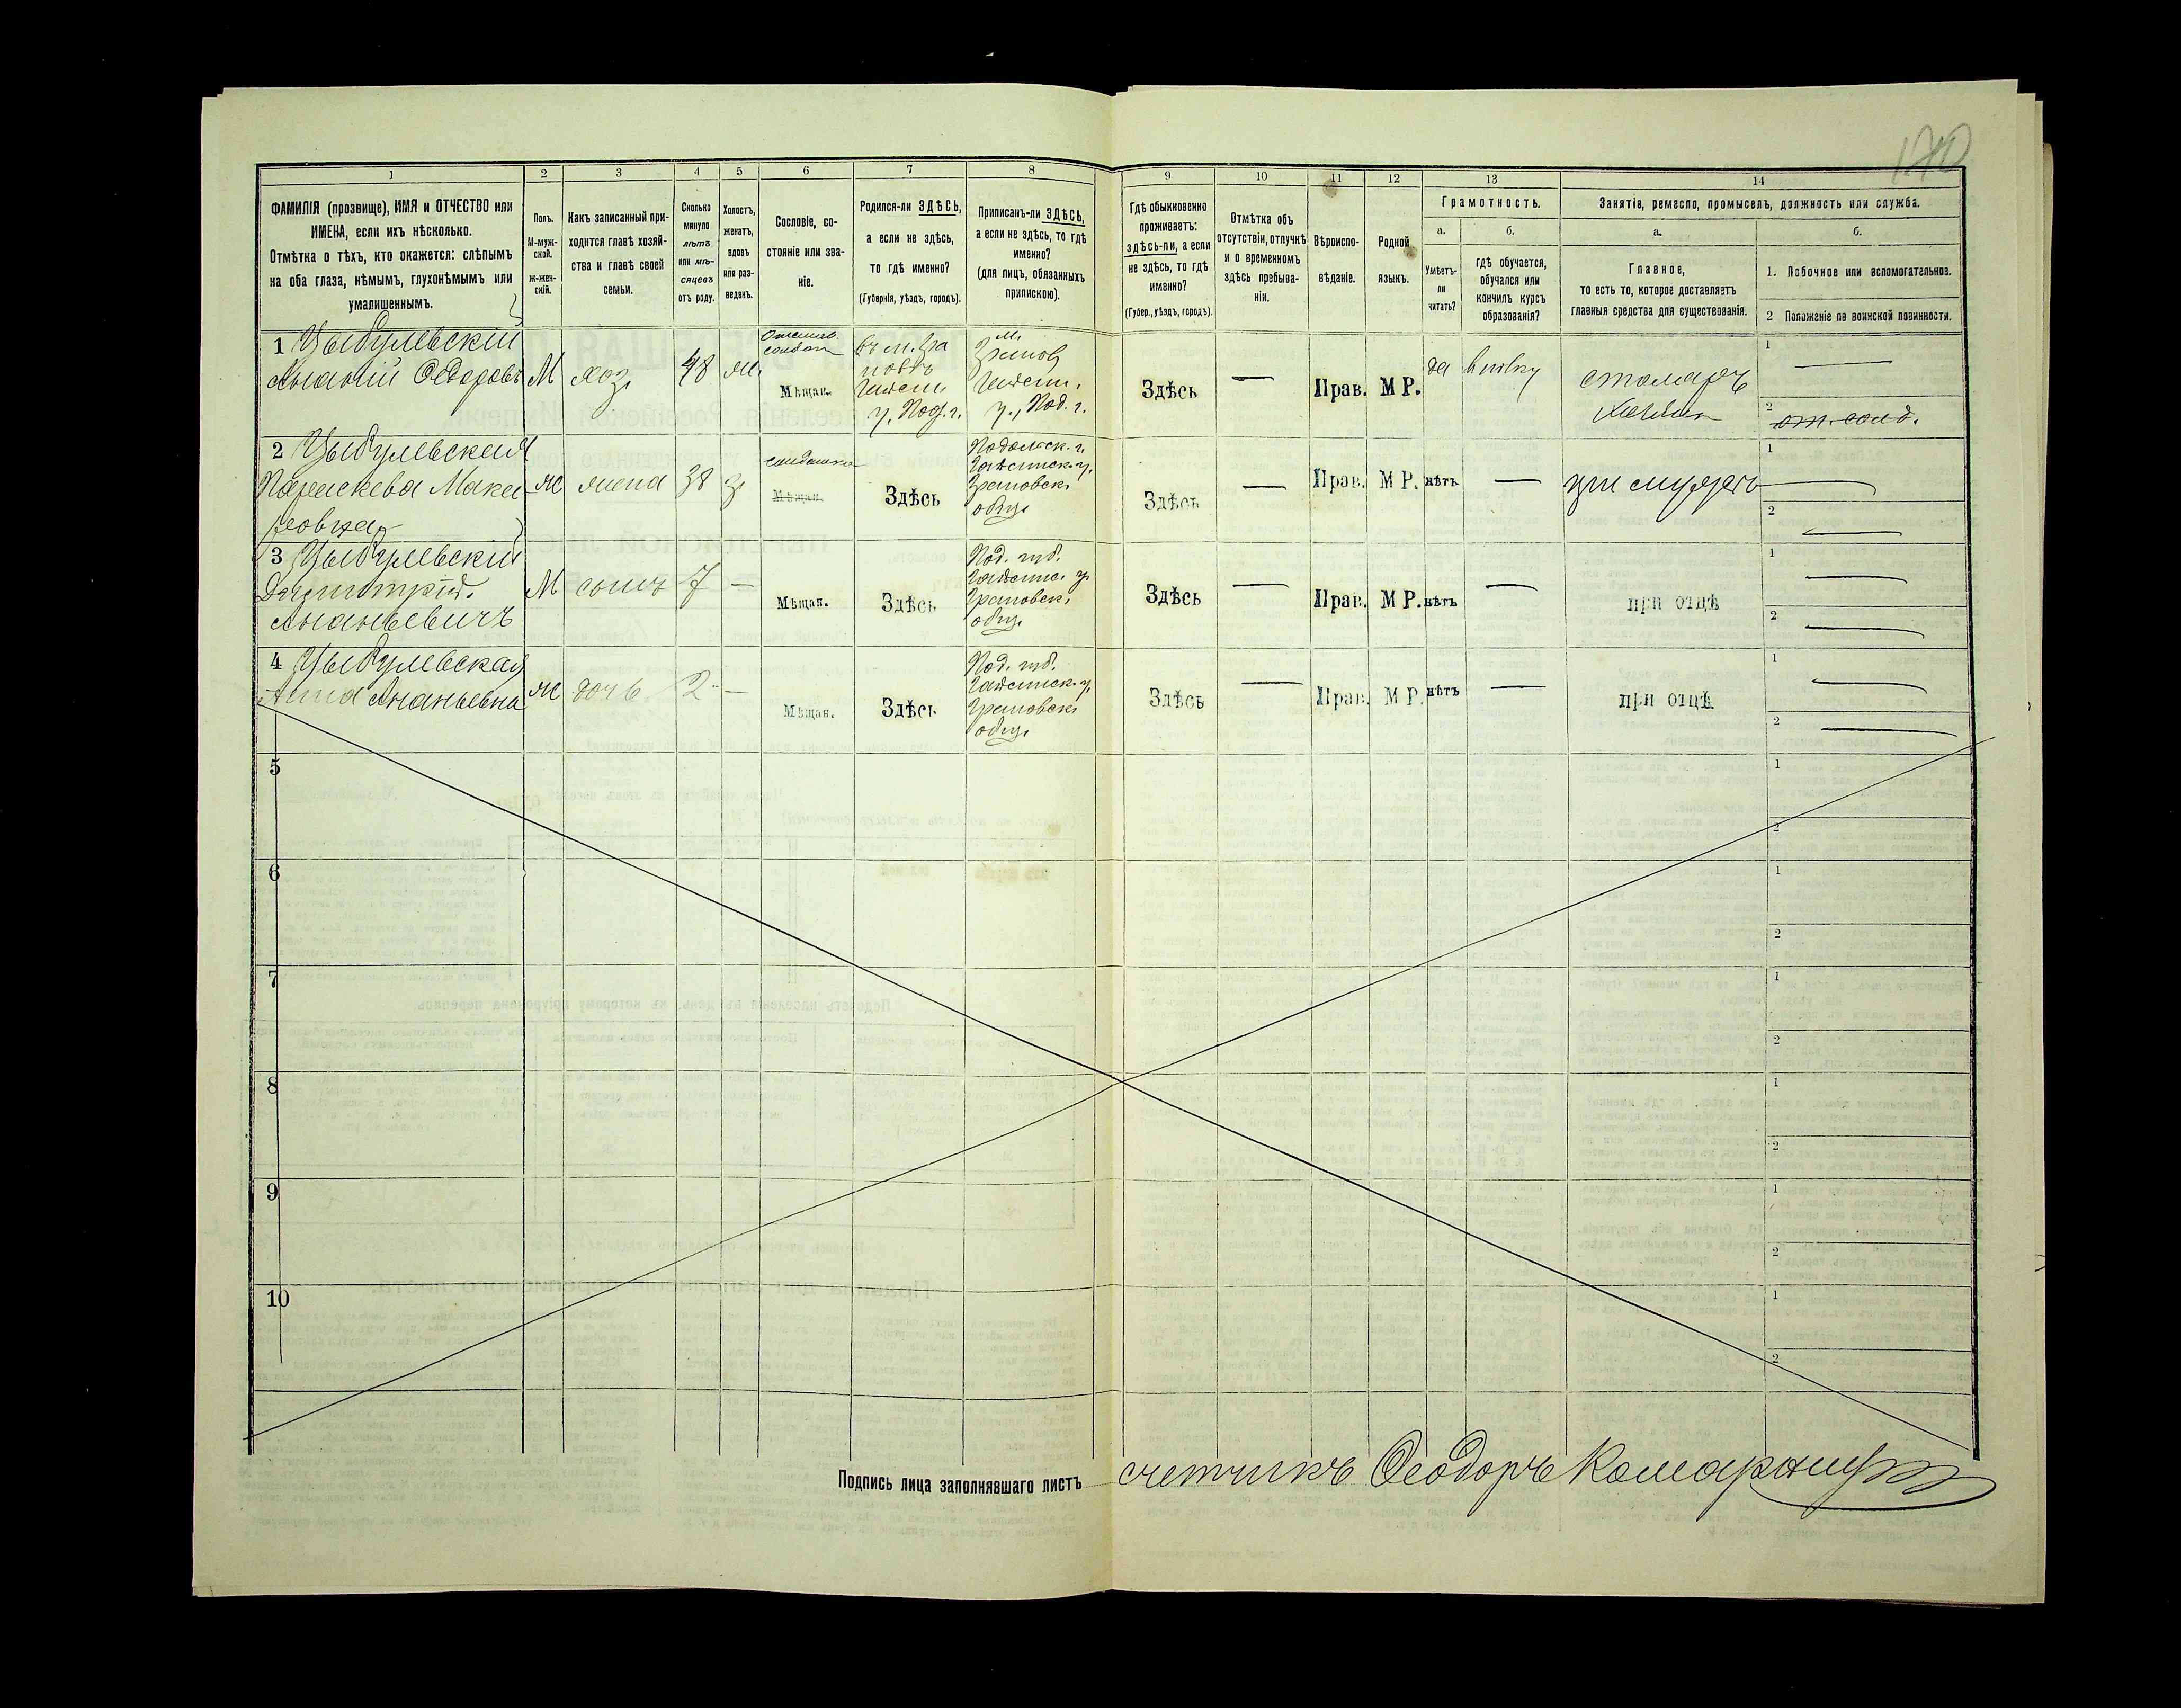 1 2 3 4 5 6 7 8 9 10 11 12 13 14
ФАМИЛІЯ (прозвище), ИМЯ и ОТЧЕСТВО или
ИМЕНА, если ихъ нѣсколько.
Отмѣтка о тѣхъ, кто окажется: слѣпымъ
на оба глаза, нѣмымъ, глухонѣмымъ или
умалишеннымъ.
Полъ.
М-муж-
ской.
ж-жен-
скій.
Какъ записанный при-
ходится главѣ хозяй-
ства и главѣ своей
семьи.
Сколько
минуло
лѣтъ
или мѣ-
сяцевъ
отъ роду.
Холостъ,
женатъ,
вдовъ
или раз-
веденъ.
Сословіе, со-
стояніе или зва-
ніе.
Родился-ли ЗДѢСЬ,
а если не здѣсь,
то гдѣ именно?
(Губернія, уѣздъ, городъ).
Приписанъ-ли ЗДѢСЬ,
а если не здѣсь, то гдѣ
именно?
(для лицъ, обязанныхъ
припискою).
Гдѣ обыкновенно
проживаетъ:
здѣсь-ли, а если
не здѣсь, то гдѣ
именно?
(Губер., уѣздъ, городъ).
Отмѣтка объ
отсутствіи, отлучкѣ
и о временномъ
здѣсь пребыва-
ніи.
Вѣроиспо-
вѣданіе.
Родной
языкъ.
Грамотность.
а.
Умѣетъ-
ли
читать?
б.
гдѣ обучается,
обучался или
кончилъ курсъ
образованія?
Занятія, ремесло, промыселъ, должность или служба.
а.
Главное,
то есть то, которое доставляетъ
главныя средства для существованія.
б.
1. Побочное или вспомогательное.
2 Положеніе по воинской повинности.
1 Цыбулевскій
Ананій Ѳедоровъ
М
хоз.
48
Мѣщан.
у. Под. г.
м.
у., Под. г.
Здѣсь
—
Прав.
М Р.
да
столяръ
1 —
2 от. солд.
2 Цыбулевская
Параскева
ж
жена
38
з
солдатка
Мѣщан.
Здѣсь
Подольск. г.
Гайсинск. у.
общ.
Здѣсь
—
Прав.
М Р.
нѣтъ
—
при мужѣ
1 —
2 —
3 Цыбулевскій
Димитрій
Ананьевичъ
М
сынъ
7
—
Мѣщан.
Здѣсь
Под. губ.
Гайсинс. у.
общ.
Здѣсь
—
Прав.
М Р.
нѣтъ
—
при отцѣ
1 —
2 —
4 Цыбулевская
Анна Ананьевна
ж
дочь
2
—
Мѣщан.
Здѣсь
Под. губ.
Гайсинск. у.
общ.
Здѣсь
—
Прав.
М Р.
нѣтъ
—
при отцѣ
1 —
2 —
5
1
2
6
1
2
7
1
2
8
1
2
9
1
2
10
1
2
Подпись лица заполнявшаго листъ счетчикъ Ѳеодоръ